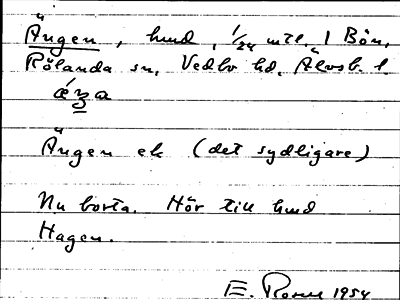 Ängen, hmd, 1/24 mtl. 1 Bön,
Rölanda sn, Vedbo hd, Älvsb. l.
ǽŋa
Ängen ek (det sydligare)
Nu borta. Hör till hmd
Hagen.
E. Rosell 1954